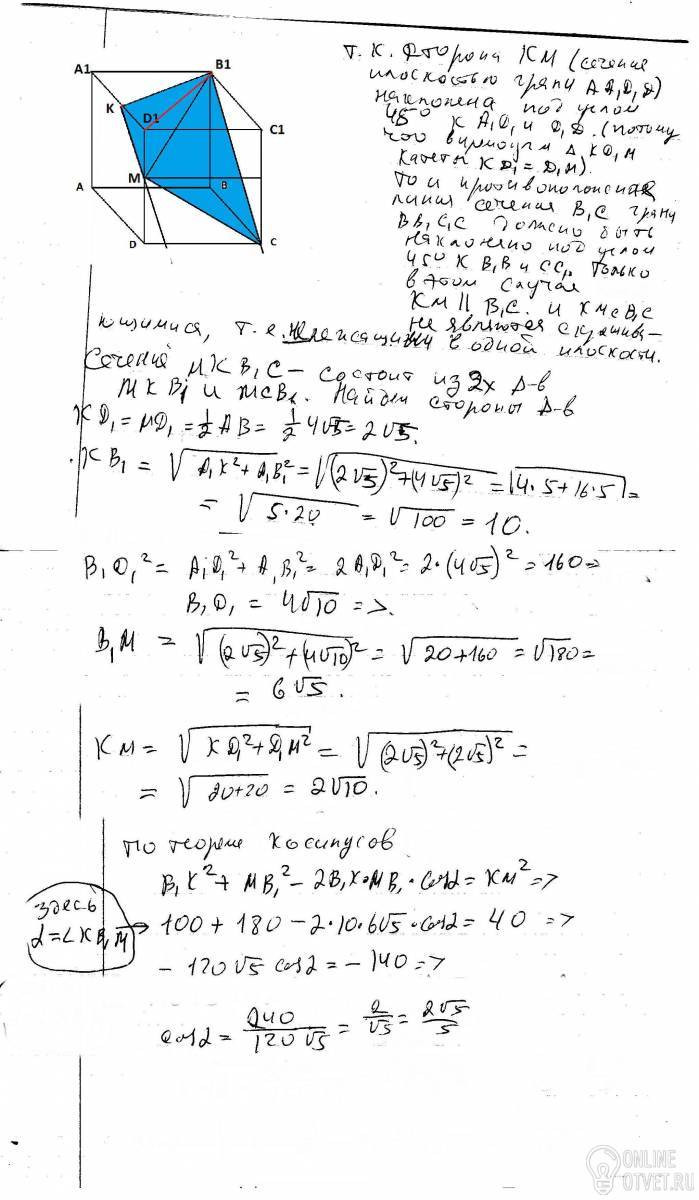 A1
B1
K
D1
C1
M
A
B
D
C
т.к. сторона КМ (сечение
плоскостью грани АА₁D₁D)
наклонена под углом
45° к А₁D₁ и D₁D. (потому
что в прямоуг Δ KD₁M
катеты KD₁ = D₁M).
То и противоположная
линия сечения В₁С грани
ВВ₁С₁С должно быть
наклонено под углом
45° к В₁В и СС₁. Только
в этом случае
КМ || В₁С. и КМ и В₁С
не являются скрещива-
ющимися, т.е. нележащими в одной плоскости.
Сечение МКВ₁С – состоит из 2х Δ-в
МКВ₁ и МСВ₁. Найдем стороны Δ-в
KD₁ = MD₁ = 1/2 AB = 1/2 4√5 = 2√5.
KB₁ = √(A₁K² + A₁B₁²) = √((2√5)² + (4√5)²) = √(4·5+16·5) =
= √(5·20) = √100 = 10.
B₁D₁² = A₁D₁² + A₁B₁² = 2A₁D₁² = 2·(4√5)² = 160 =>
B₁D₁ = 4√10 =>.
B₁M = √((2√5)² + (4√10)²) = √(20+160) = √180 =
= 6√5.
KM = √(KD₁² + D₁M²) = √((2√5)² + (2√5)²) =
= √(20+20) = 2√10.
По теореме косинусов
B₁K² + MB₁² – 2B₁K·MB₁·cosα = KM² =>
здесь
α = ∠KB₁M
100 + 180 – 2·10·6√5·cosα = 40 =>
– 120√5 cosα = – 140 =>
cosα = 240/120√5 = 2/√5 = 2√5/5
ONLINE
OTVET.RU